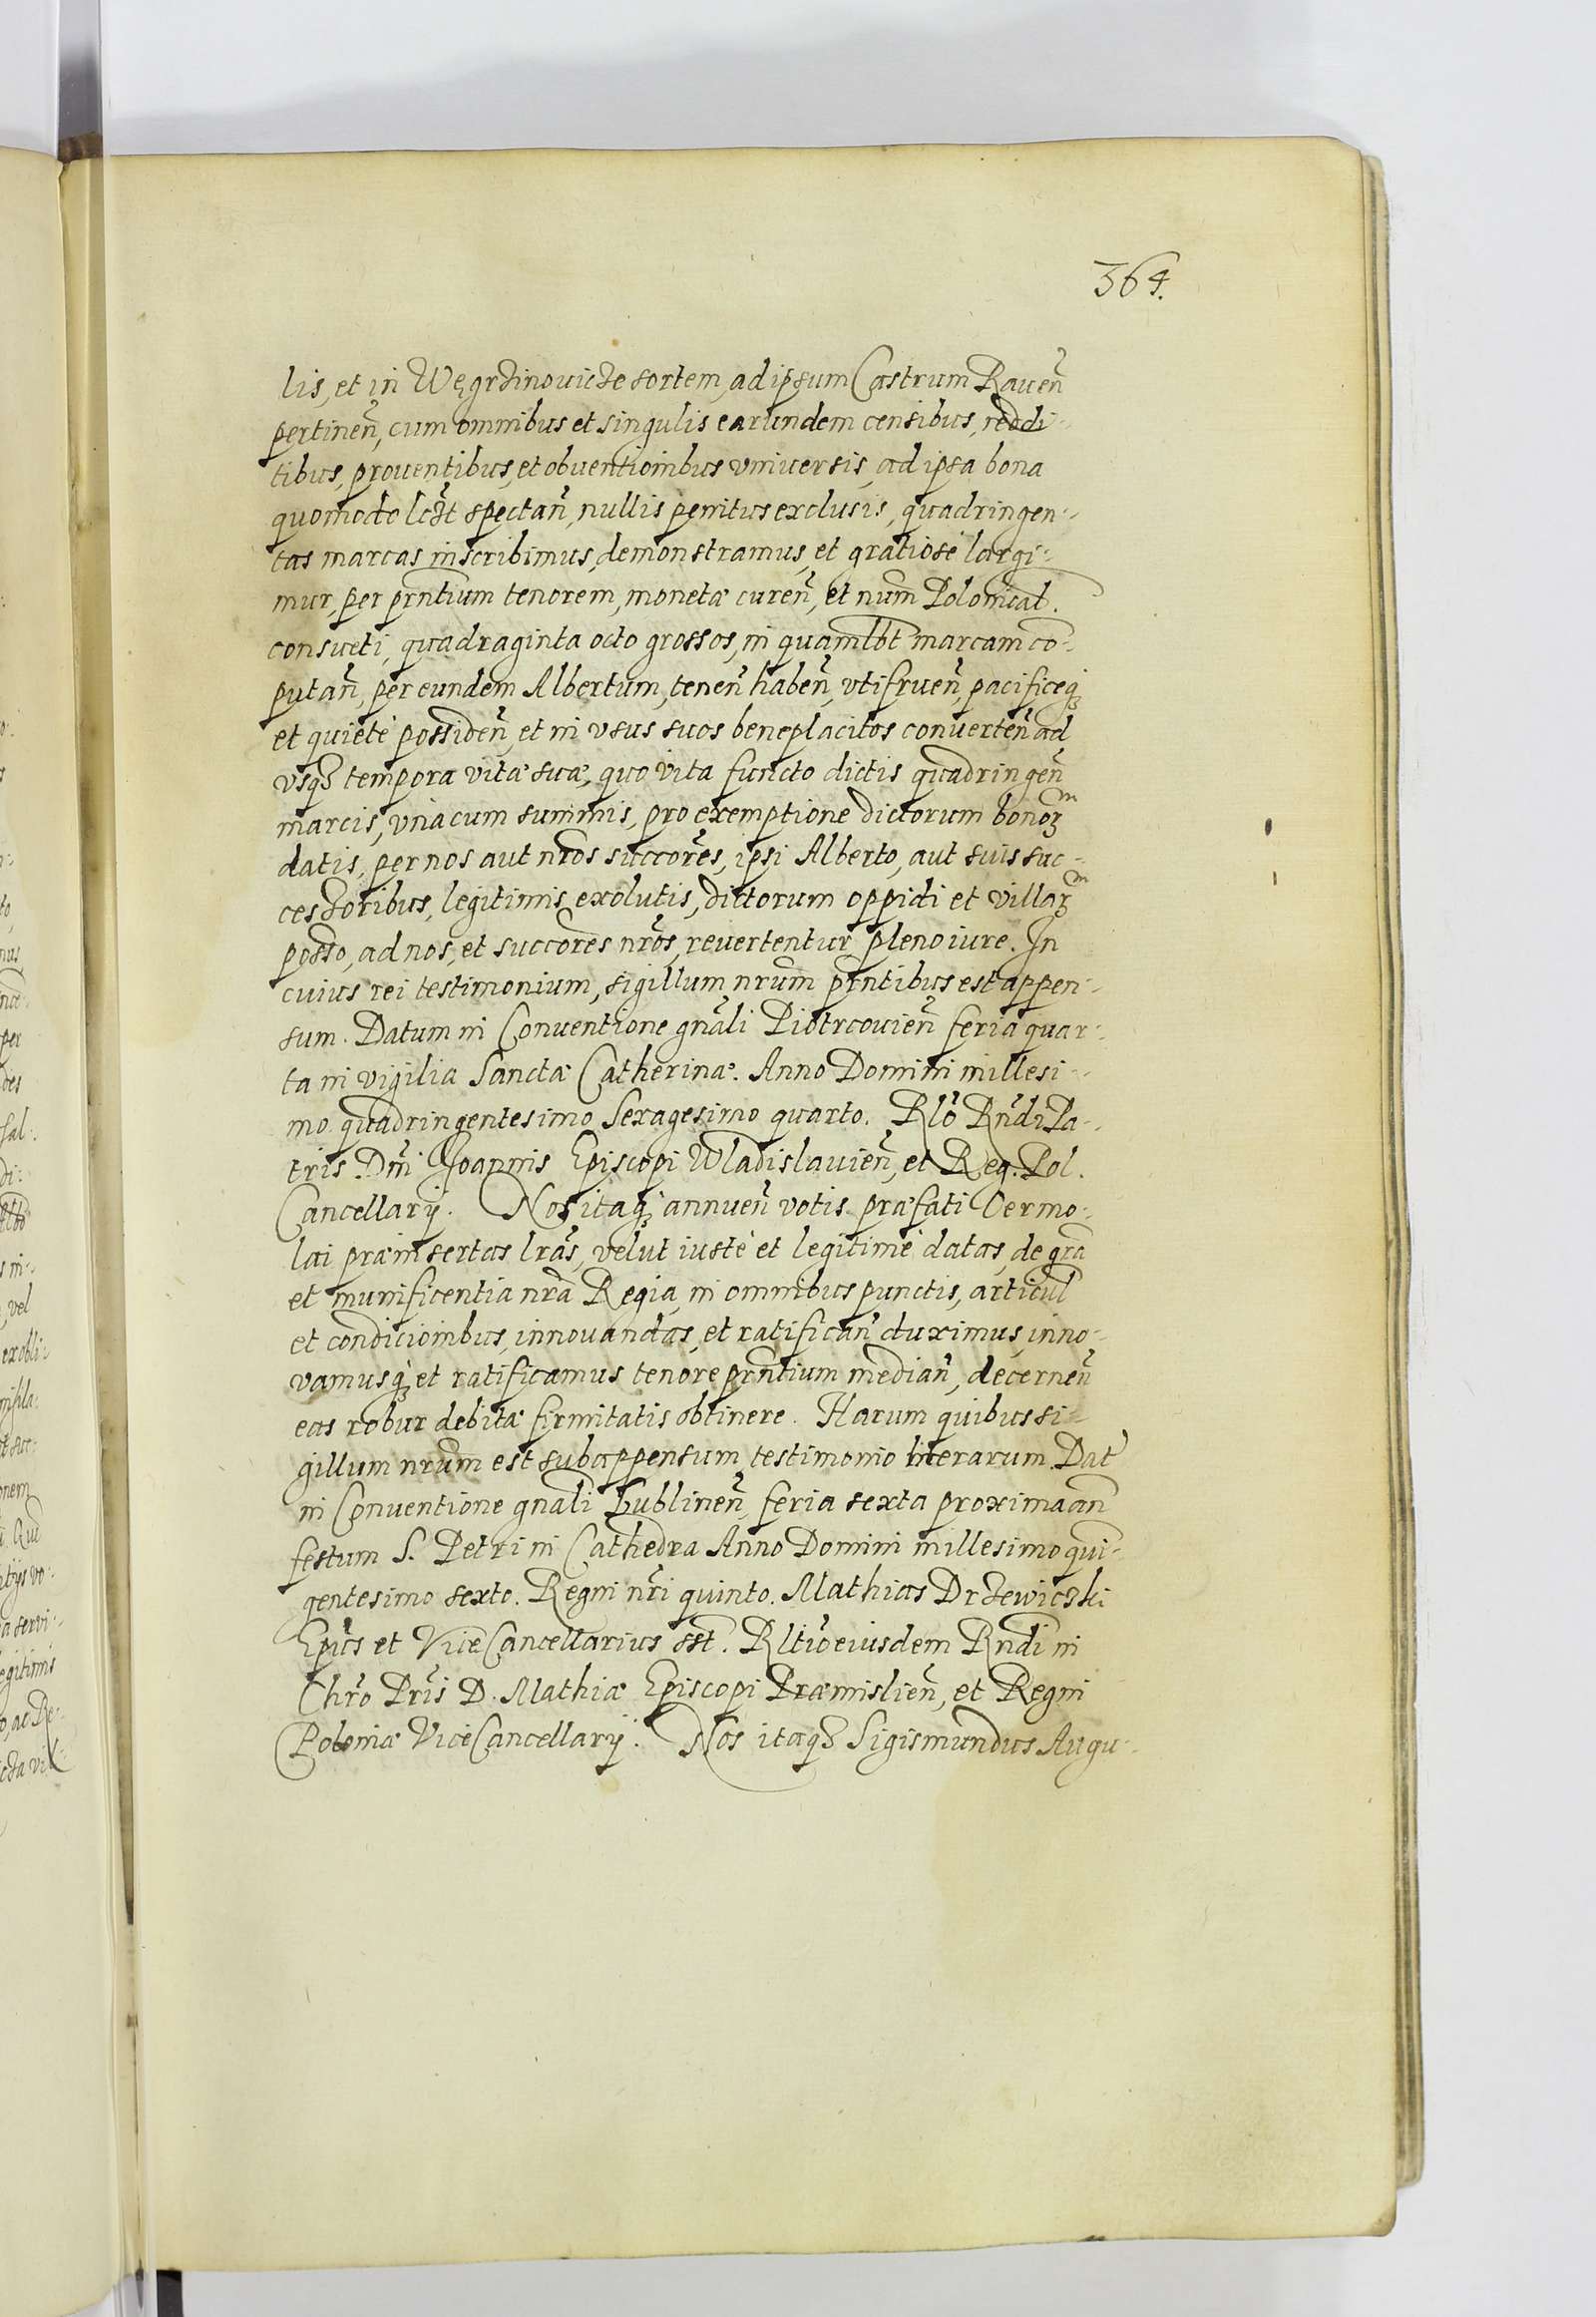 364.
lis, et in Węgrzinovicze sortem, ad ipsum Castrum Raven̄
pertinen̄, cum omnibus et singulis earundem censibus, reddi-
tibus, proventibus, et obventioīnibus vniversis, ad ipsa bona
quomodolꝫt spectan̄, nullis penitus exclusis, quadringen-
tas marcas inscribimus, demonstramus, et gratiosè largi-
mur, per prn̄tium tenorem, monetæ curen̄, et num̄ Polonical.
consueti, quadraginta octo grossos, in quamlb̄t marcam co-
putan̄, per eundem Albertum, tenen̄ haben̄, vtifruen̄, pacificeqꝫ
et quietè possiden̄, et in vsus suos beneplacitos converten̄ ad
vsqꝫ tempora vitæ suæ, quo vita functo dictis quadringen̄
marcis, vnà cum summis, pro exemptione dictorum bonoꝝm
datis, per nos aut nr̄os succor̄es, ipsi Alberto, aut suis suc-
cessoribus, legitimis exolutis, dictorum oppidi et villaꝝm
posso, ad nos, et succores nr̄os, revertentur pleno iure. In
cuius rei testimonium, sigillum nrūm prn̄tibus est appen-
sum. Datum in Conventione gnāli Piotrcovien̄ feria quar-
ta in vigilia Sanctæ Catherinæ. Anno Domini millesi-
mo quadringentesimo Sexagesimo quarto. Rlō Rn̄di Pa-
tris Dn̄i Joannis Episcopi Wladislavien̄, et Reg. Pol.
Cancellarij. Nos itaqꝫ annuen̄ votis præfati Cermo-
lai præinsertas lrās, velut iustè et legitimè datas, de grā
et munificentia nrā Regia, in omnibus punctis, articul
et condicioīnibus, innovandas, et ratifican̄ duximus, inno-
vamusqꝫ et ratificamus tenore prn̄tium median̄, decernen̄
eas robur debitæ firmitatis obtinere. Harum quibus si-
gillum nrūm est subappensum, testimonio literarum. Dat
in Conventione gnāli Lublinen̄, feria sexta proxima an̄
festum S. Petri in Cathedra Anno Domini millesimo qui-
gentesimo sexto. Regni nr̄i quinto. Mathias Drzewiczki
Epūs et ViceCancellarius sst̄. Rltīo eiusdem Rndī in
Chr̄o Prīs D. Mathiæ Episcopi Præmislien̄, et Regni
Poloniæ ViceCancellarij. Nos itaqꝫ Sigismundus Augu-